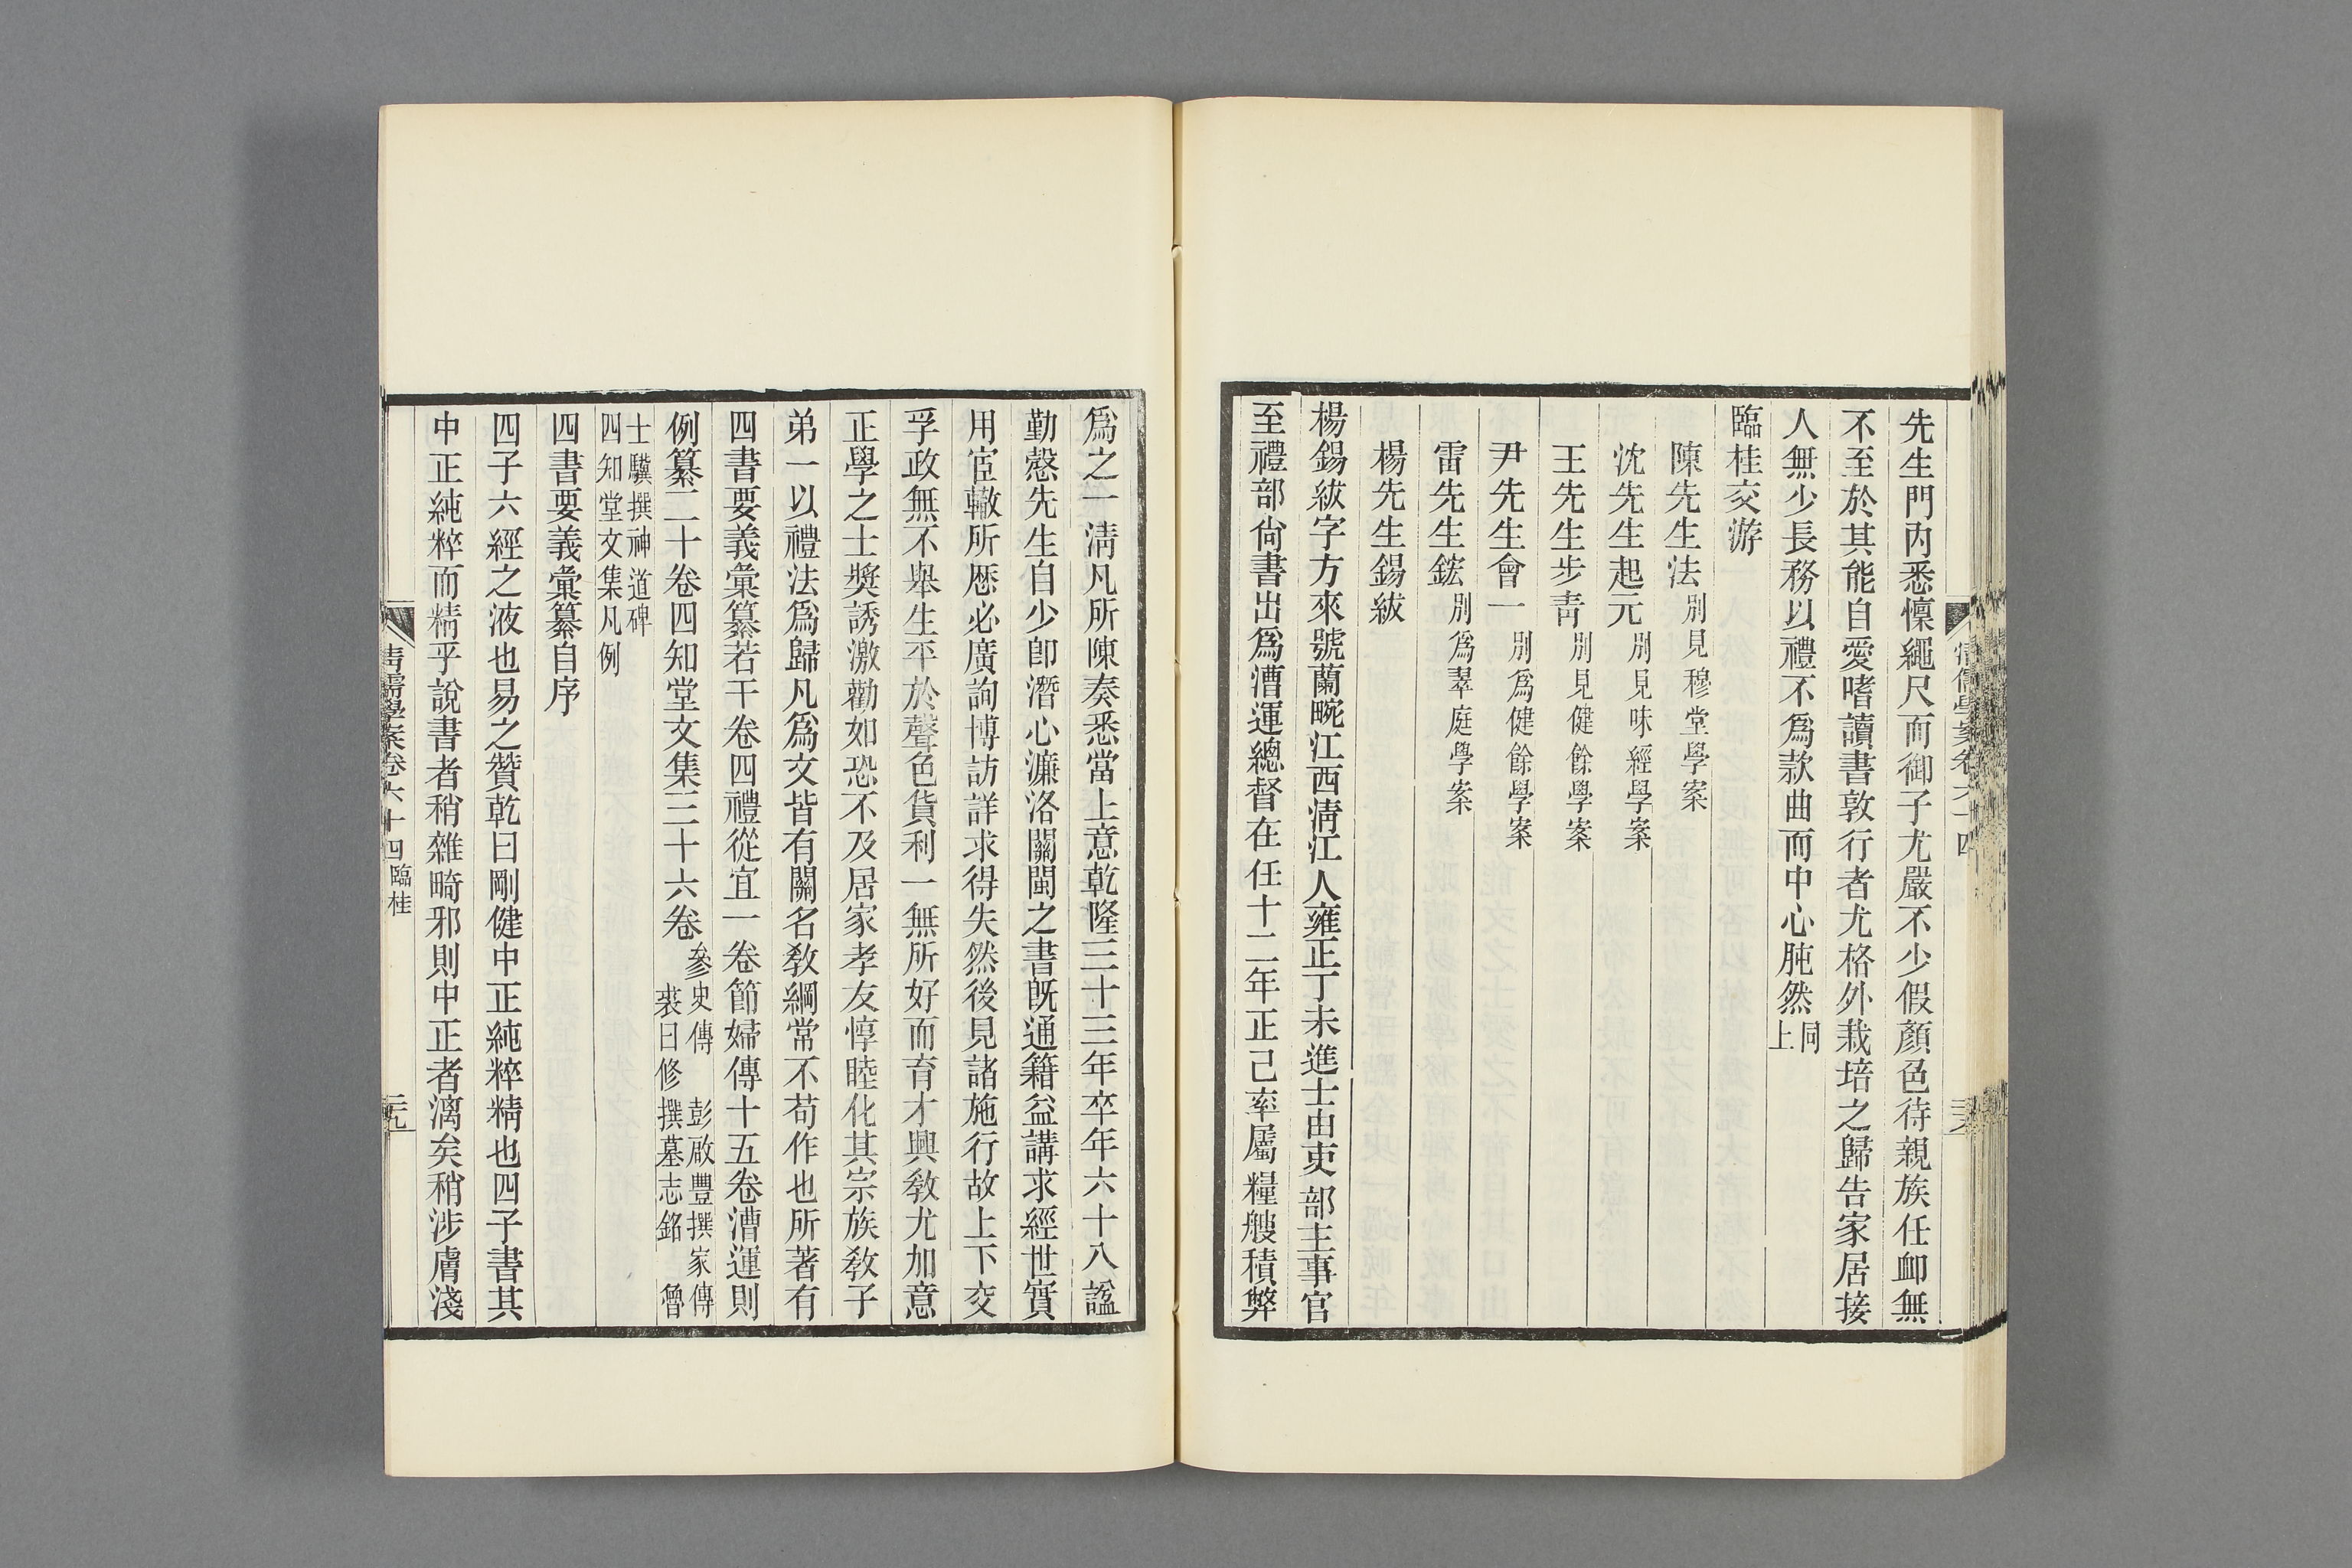 先生門內悉懍繩尺而御子尤嚴不少假顏色待親族任卹無
不至於其能自愛嗜讀書敦行者尤格外栽培之歸告家居接
人無少長務以禮不爲款曲而中心肫然同上
臨桂交游
陳先生法別見穆堂學案
沈先生起元別見味經學案
王先生步靑別見健餘學案
尹先生會一別爲健餘學案
雷先生鋐別爲翠庭學案
楊先生錫紱
楊錫紱字方來號蘭畹江西淸江人雍正丁未進士由吏部主事官
至禮部尙書出爲漕運總督在任十二年正己率屬糧艘積弊
爲之一淸凡所陳奏悉當上意乾隆三十三年卒年六十八諡
勤慤先生自少卽潛心濂洛關閩之書旣通籍益講求經世實
用宦轍所厯必廣詢博訪詳求得失然後見諸施行故上下交
孚政無不舉生平於聲色貨利一無所好而育才興敎尤加意
正學之士奬誘激勸如恐不及居家孝友惇睦化其宗族敎子
弟一以禮法爲歸凡爲文皆有關名敎綱常不苟作也所著有
四書要義彙纂若干卷四禮從宜一卷節婦傳十五卷漕運則
例纂二十卷四知堂文集三十六卷參史傳 彭啟豐撰家傳 裘曰修撰墓志銘 曾
士驥撰神道碑 四知堂文集凡例
四書要義彙纂自序
四子六經之液也易之贊乾曰剛健中正純粹精也四子書其
中正純粹而精乎說書者稍雜畸邪則中正者漓矣稍涉膚淺
淸儒學案卷六十四臨桂 二九